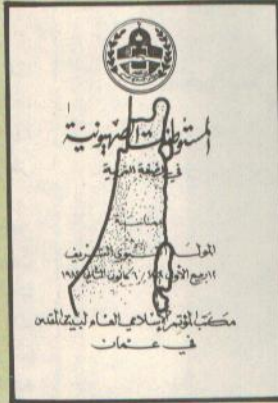 المستوطنات الصهيونية
في الضفة الغربية
بمناسبة
المولد النبوي الشريف
١٢ ربيع الأول ١٤٠٢ / ٦ كانون الثاني ١٩٨٢
مكتب المؤتمر الإسلامي العام لبيت المقدس
في عمان